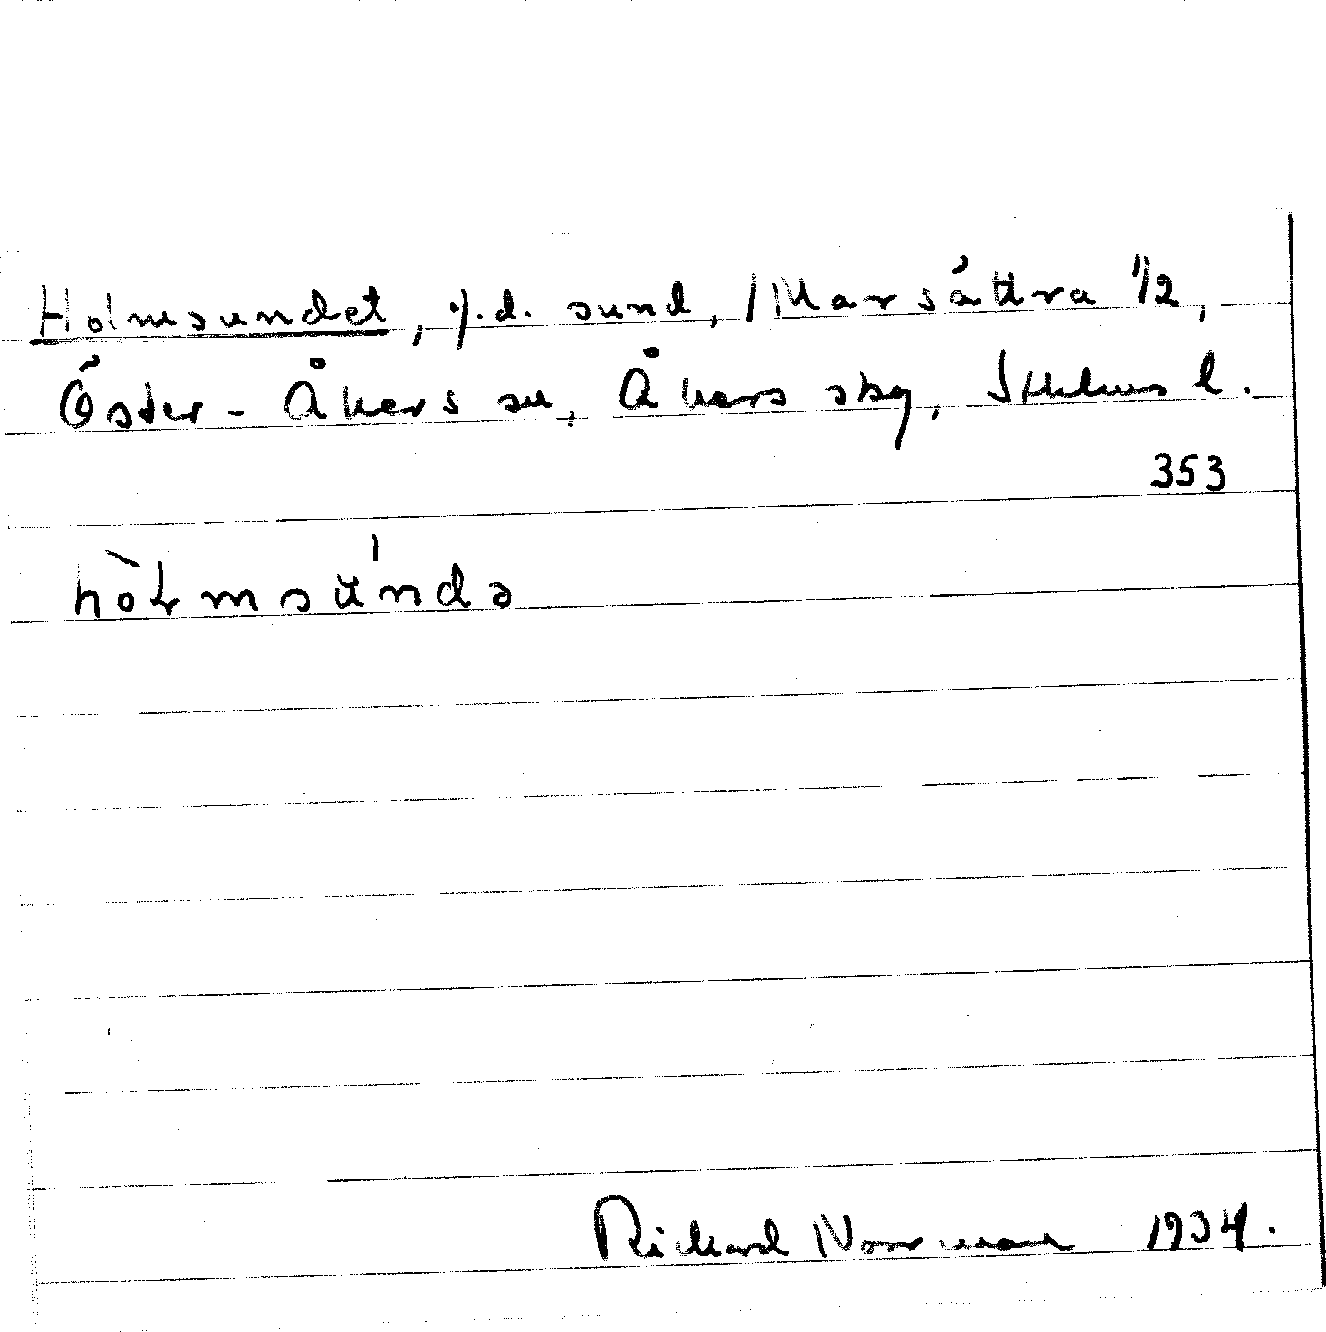 Holmsundet, g.d. sund, Marsättra 1/2,
Öster-Åkers sn, Åkers skg, Sthlms l.
353
hòłmsúndə
Rickard Norrman 1934.